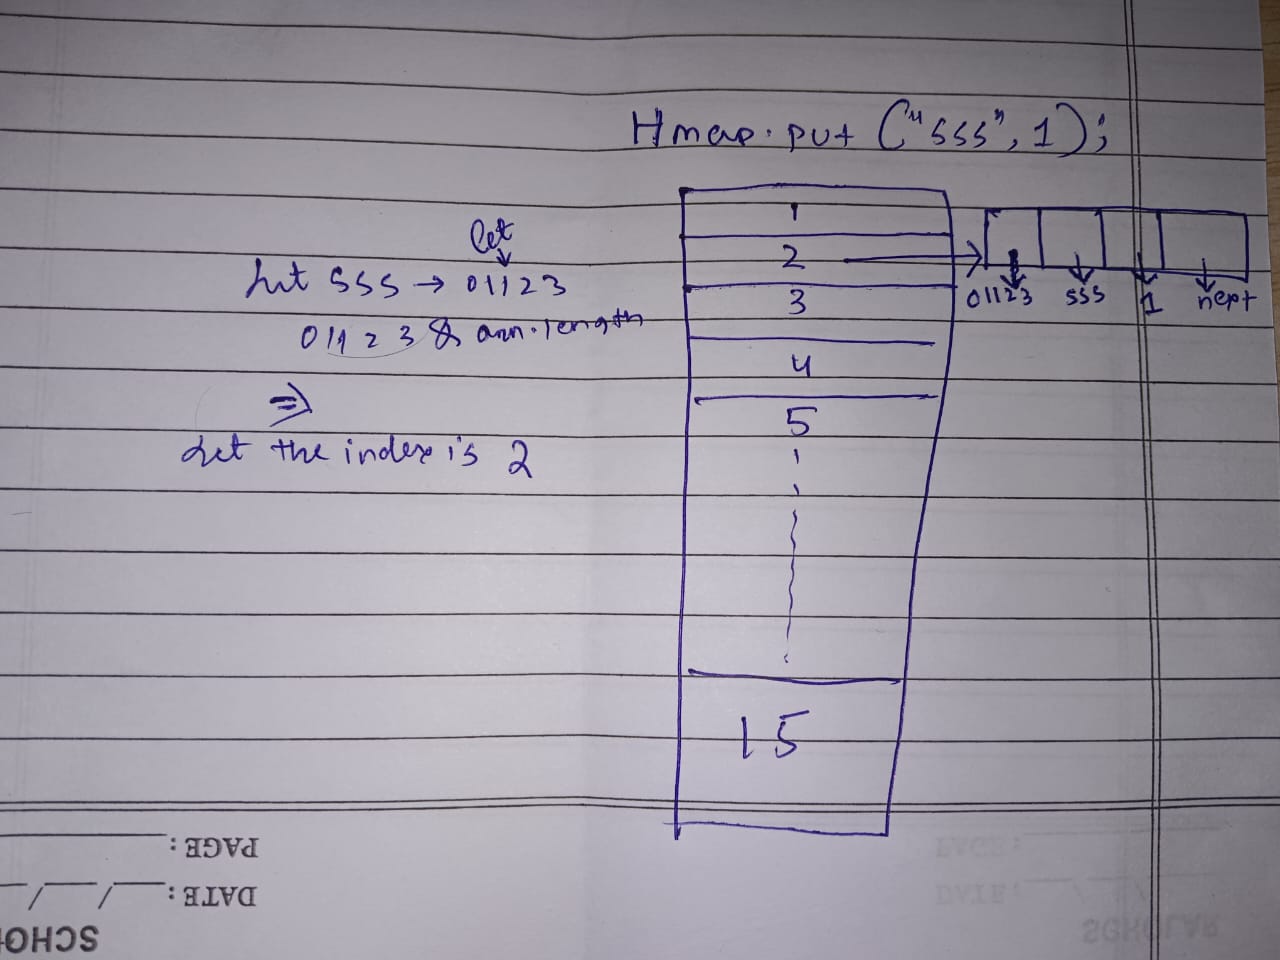 Hmap.put ("sss", 1);
let
hit sss → 01123
01123 & arr.length
⇒
Let the index is 2
1
2
3
4
5
15
01123 sss 1 next
PAGE:
DATE: / /
SCHO